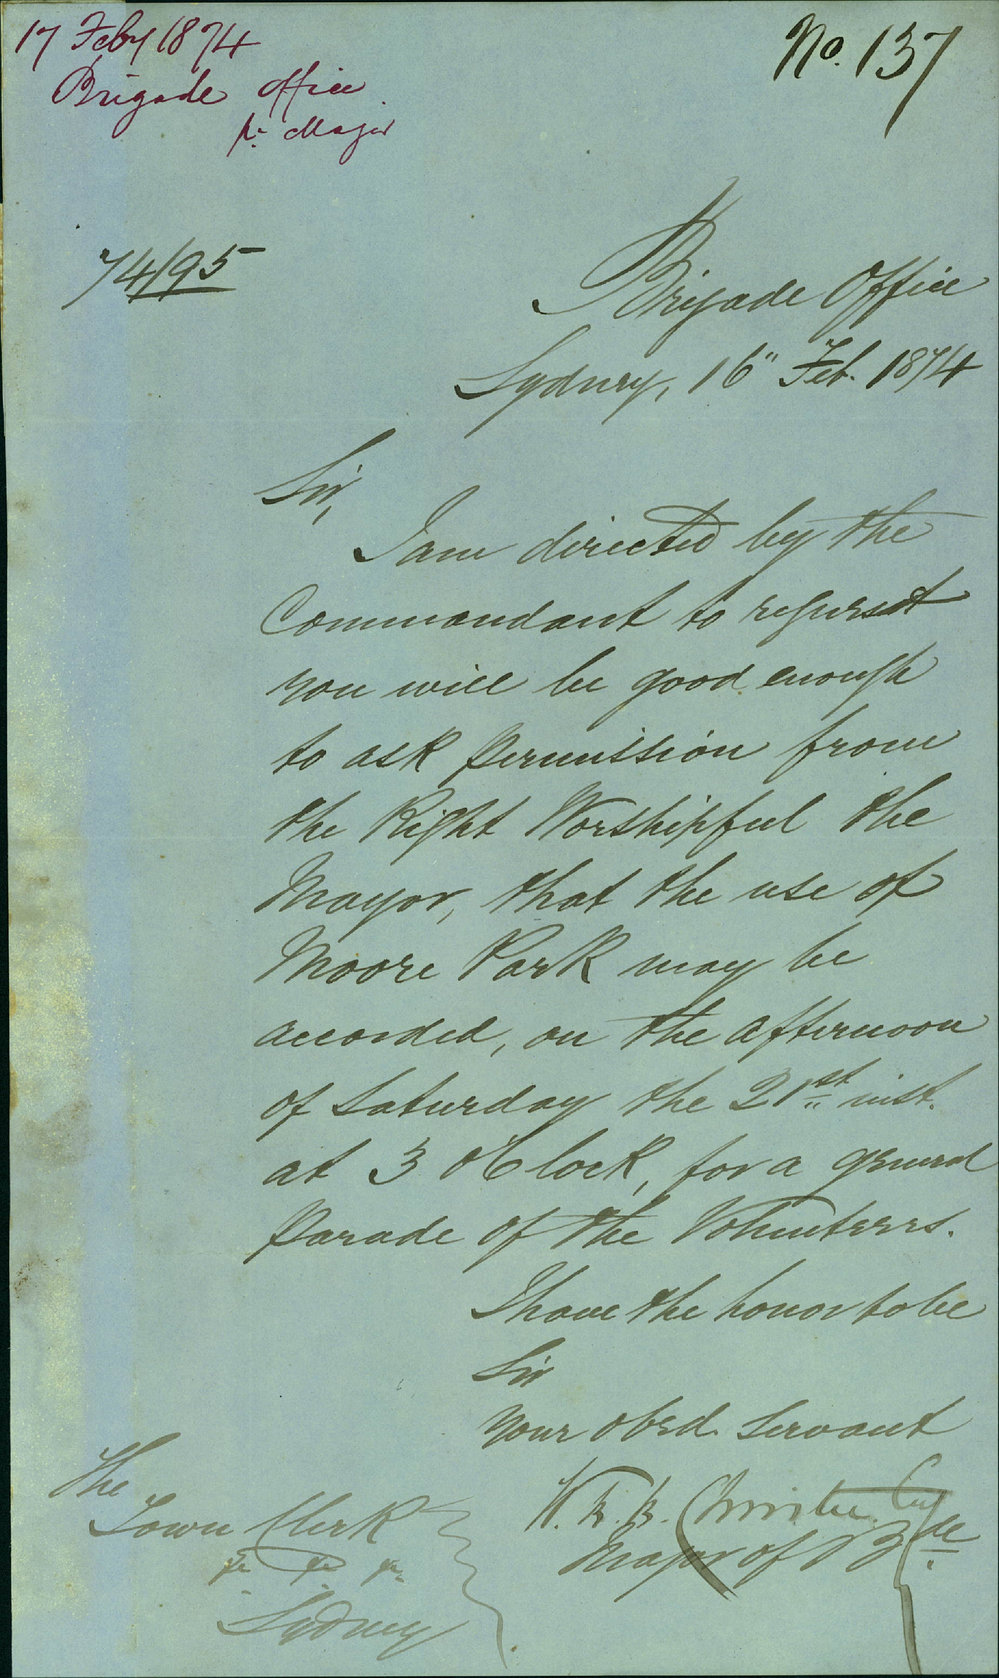 17 Feby 1874
Brigade Office
pr Major
No. 137
74/195
Brigade Office
Sydney, 16" Feb. 1874
Sir,
I am directed by the
Commandant to request
you will be good enough
to ask permission from
the Right Worshipful the
Mayor, that the use of
Moore Park may be
accorded, on the afternoon
of Saturday the 21st inst.
at 3 o'Clock, for a general
Parade of the Volunteers.
I have the honor to be
Sir
Your obed. Servant
Christie
Major of Bde.
The
Town Clerk
Sydney